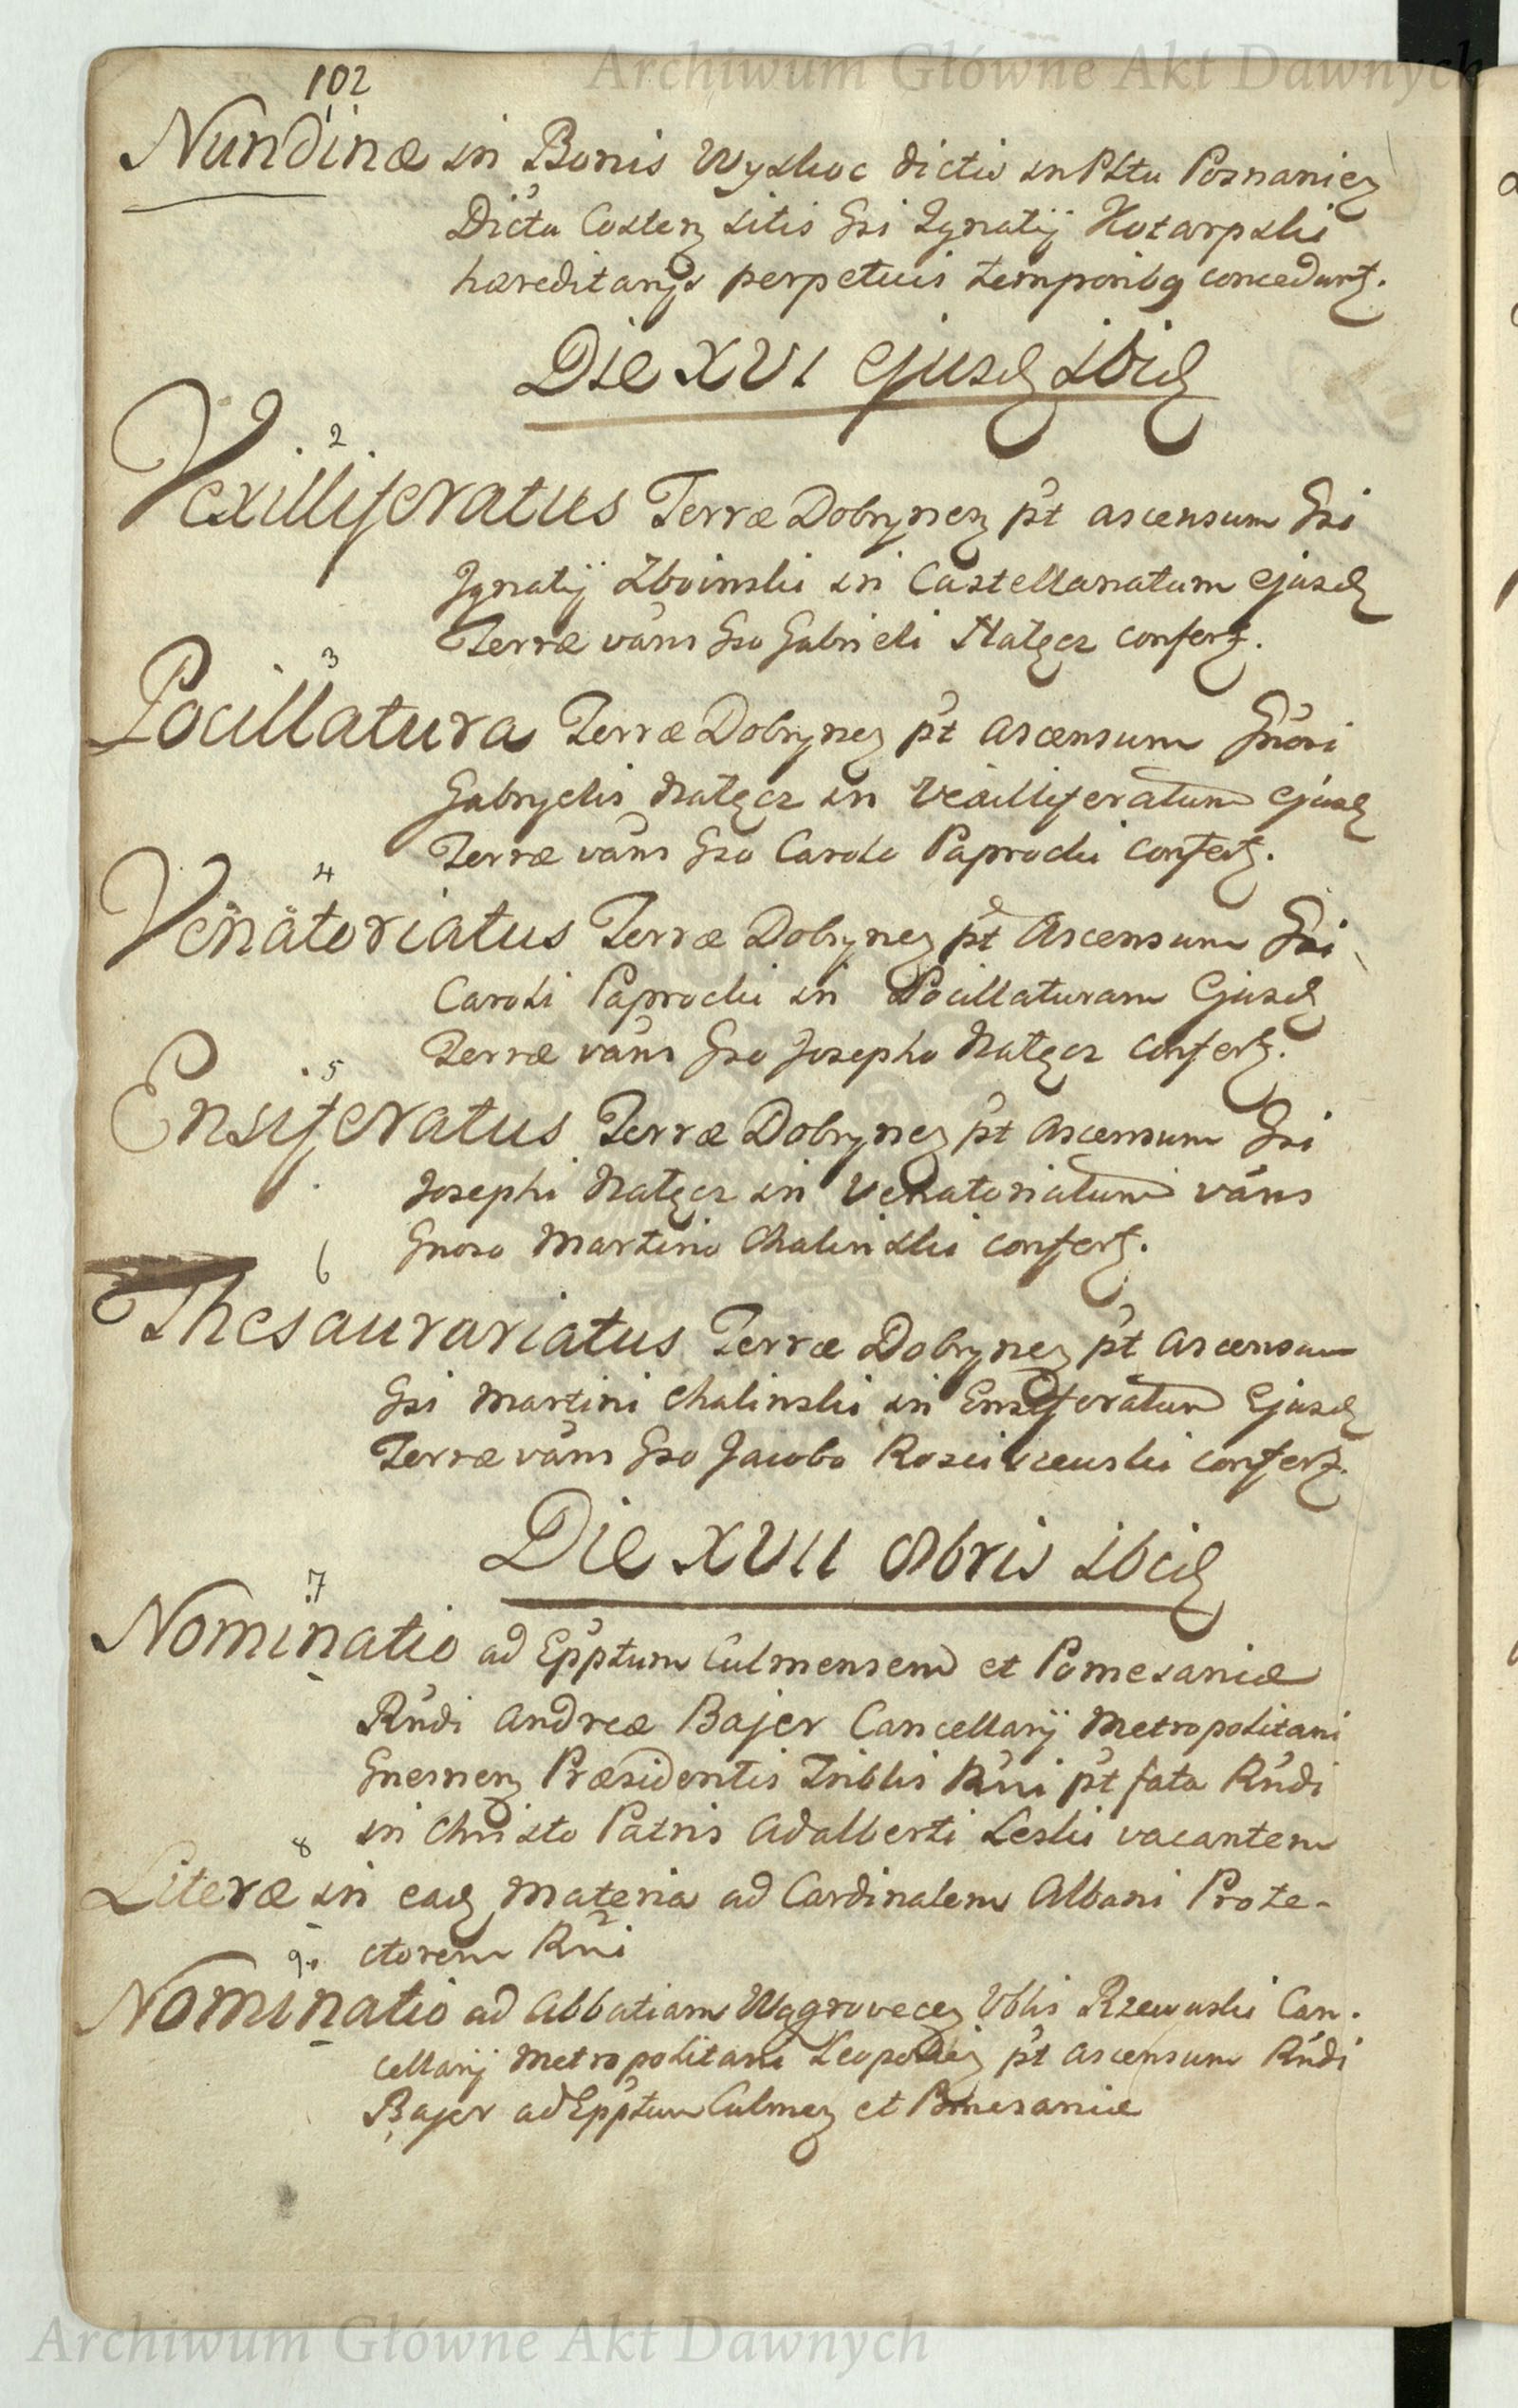 Archiwum Główne Akt Dawnych
102
Nundinæ in Bonis Wyskoc dictis in Pttu Posnanien
Dictu Costen sitis Gsi Ignatij Kozarpski
hæreditarijs perpetuis temporibq concedunt.
Die XVI ejusd ibid
2
Vexilliferatus Terræ Dobrynen pt ascensum Gsi
Ignatij Zboinski in Castellanatum ejusd
Terræ vans Gso Gabrieli Nałęcz confert.
3
Pocillatura Terræ Dobrynen pt ascensum Gnosi
Gabryelis Nałęcz in Vexilliferatum ejusd
Terræ vans Gso Carolo Paprocki confert.
4
Venatoriatus Terræ Dobrynen pt Ascensum Gsi
Caroli Paprocki in Pocillaturam Ejusd
Terræ vans Gso Josepho Nałęcz confert.
5
Ensiferatus Terræ Dobrynen pt Ascensum Gsi
Josephi Nałęcz in Venatoriatum vans
Gnoso Martino Chalinski confert.
6
Thesaurariatus Terræ Dobrynen pt Ascensum
Gsi Martini Chalinski in Ensiferatum Ejusd
Terræ vans Gso Jacobo Rosciszewski confert.
Die XVII 8bris ibid
7
Nominatio ad Epptum Culmensem et Pomesaniæ
Rndi Andreæ Bajer Cancellarij Metropolitani
Gnesnen Præsidentis Triblis Rni pt fata Rndi
in Christo Patris Adalberti Leski vacantem
8
Literæ in ead Materia ad Cardinalem Albani Prote-
ctorem Rni
9.
Nominatio ad Abbatiam Wągrovecen Vblis Rzewuski Can.
cellarij Metropolitani Leopolien pt Ascensum Rndi
Bajer ad Epptum Culmen et Pomesaniæ
Archiwum Główne Akt Dawnych